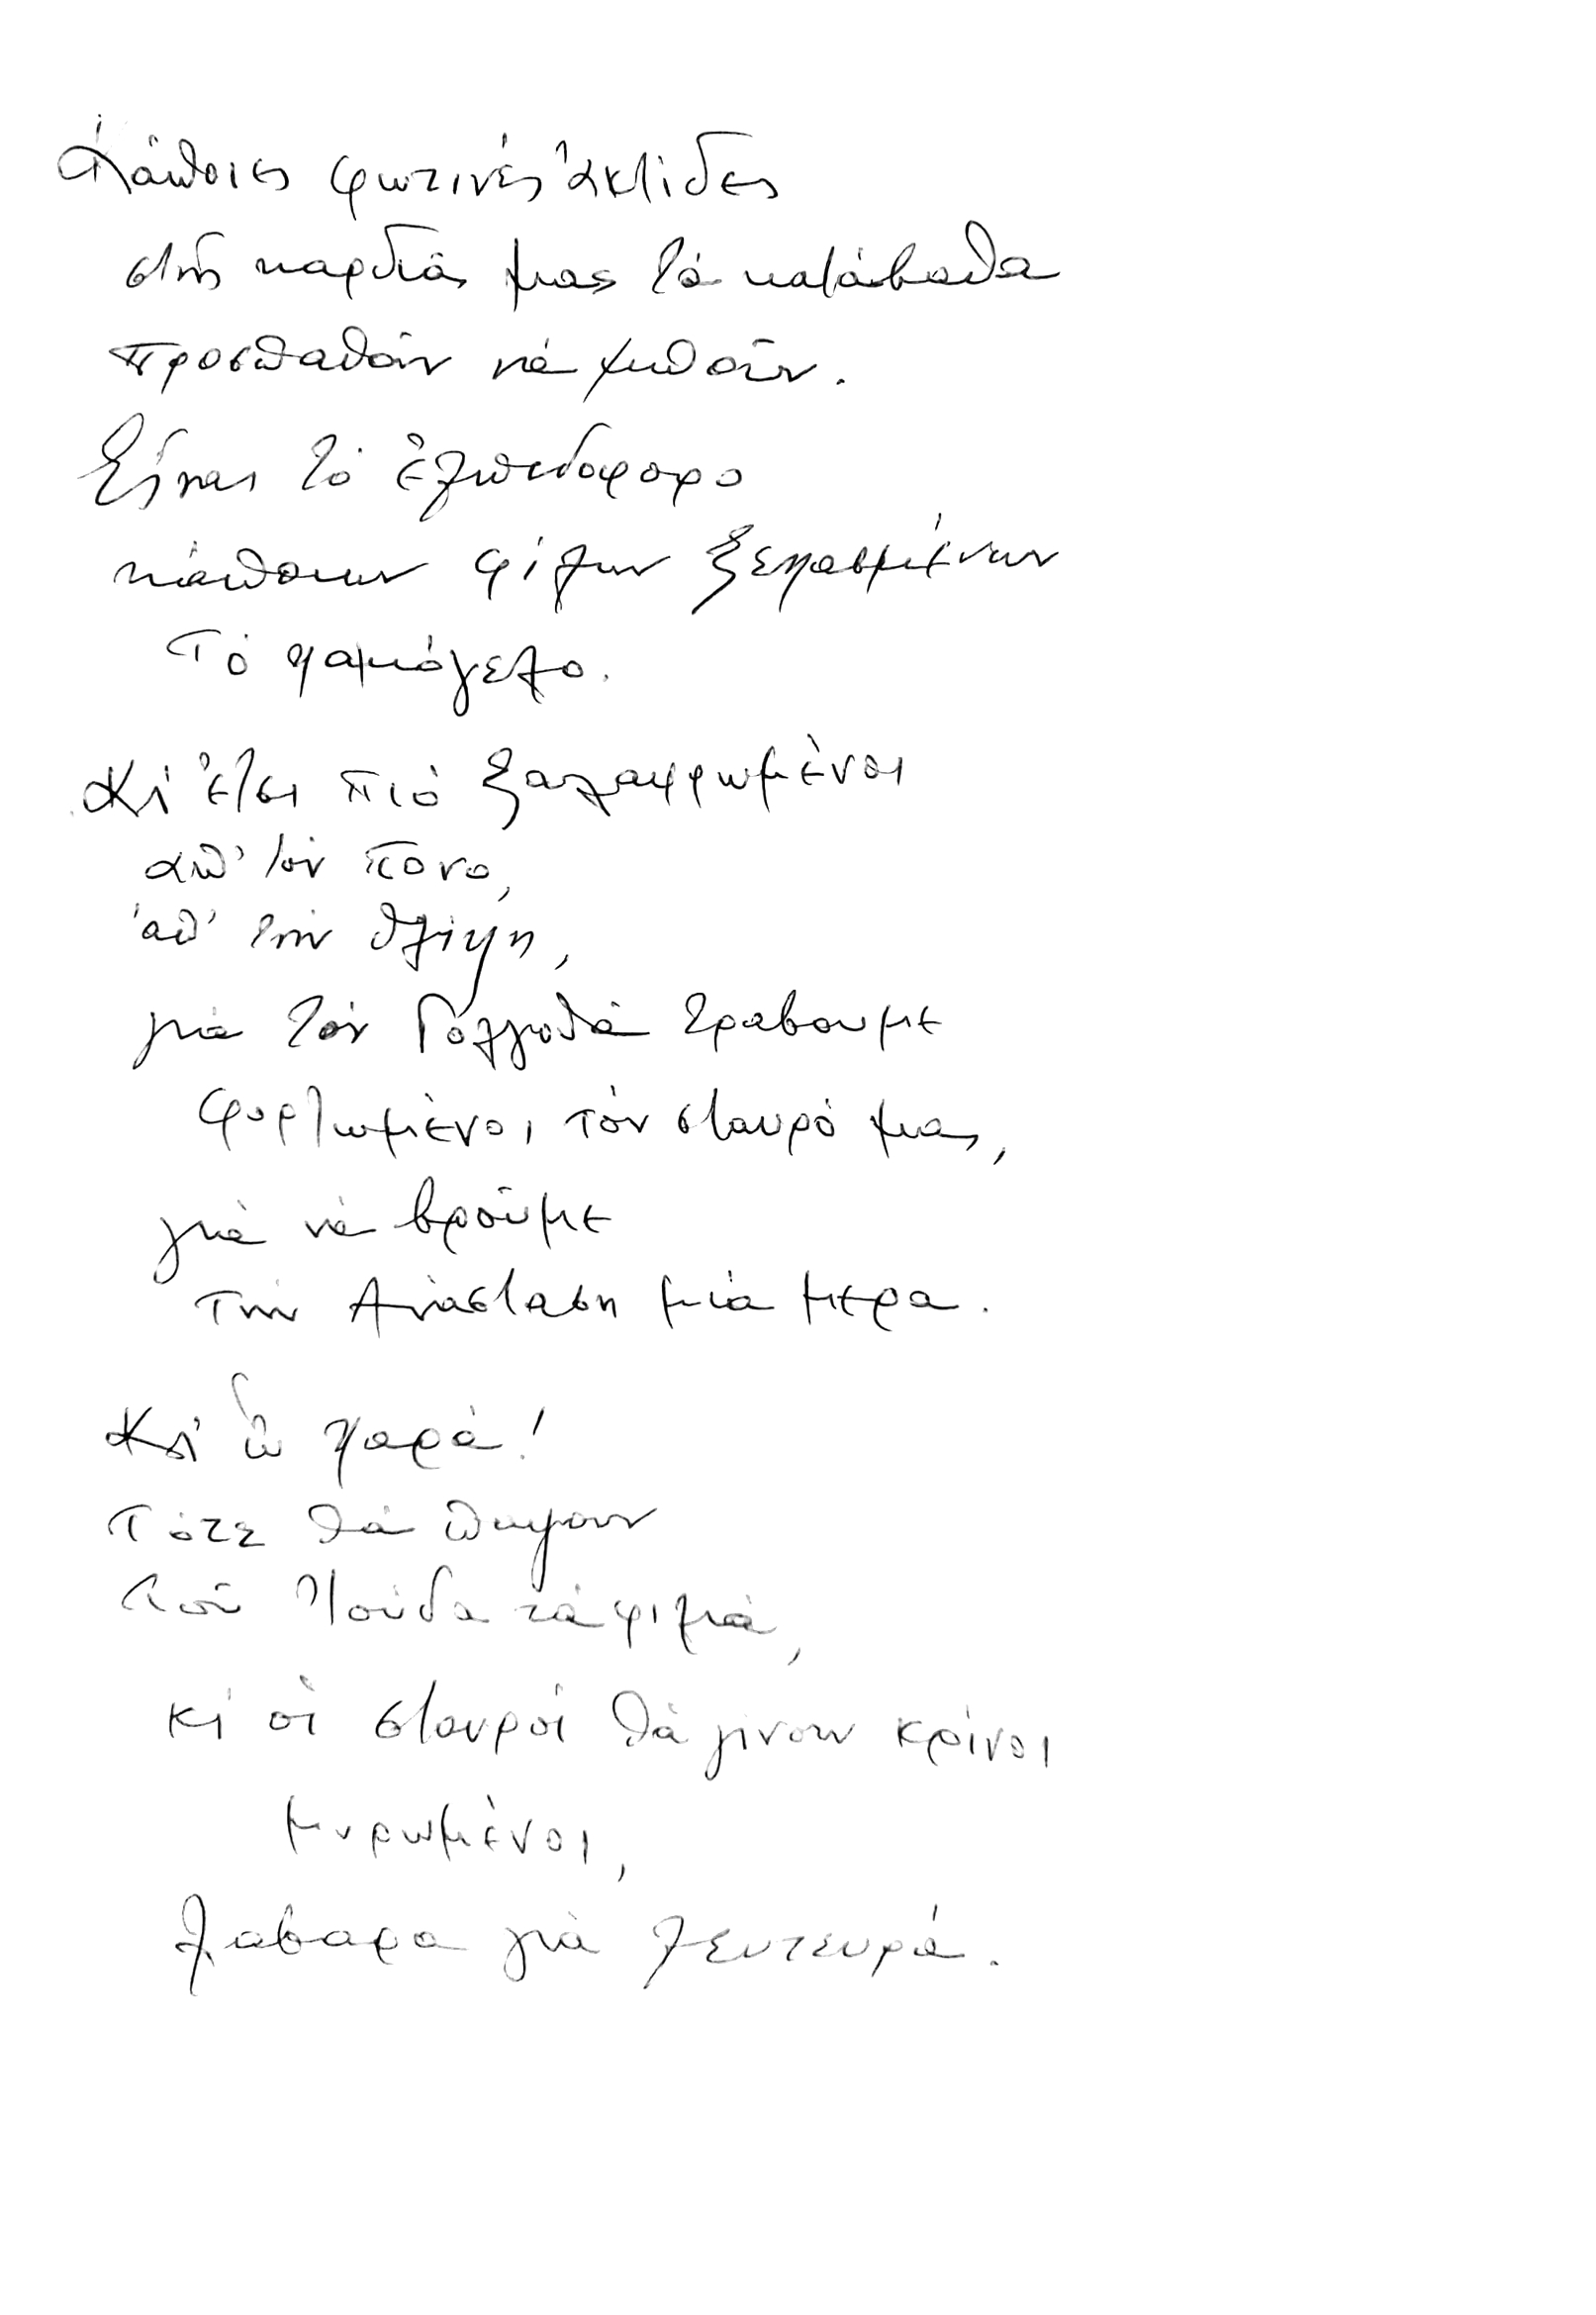 Κάποιες φωτινές ἀκτίδες
στῆς καρδιᾶς μας τά κατάβαθα
προσπαθοῦν νά χυθοῦν.
Εἶναι τό ἐλπιδοφορο
κάποιων φίλων ξεχασμένων
τό χαμόγελο.
Κι ἔτσι πιό ξαλαφρωμένοι
ἀπ' τόν πονο,
ἀπ' τήν θλίψη,
γιά τόν Γολγοθᾶ τραβουμε
φορτωμένοι τόν σταυρό μας,
γιά νά βροῦμε
τήν Ἀνάσταση μιά μερα.
Κι ὦ χαρά!
Τότε θά παψουν
τοῦ Ἰούδα τά φιλιά,
κι οἱ σταυροί θά γινουν κρίνοι
μυρωμένοι,
λαβαρα γιά λευτευρά.